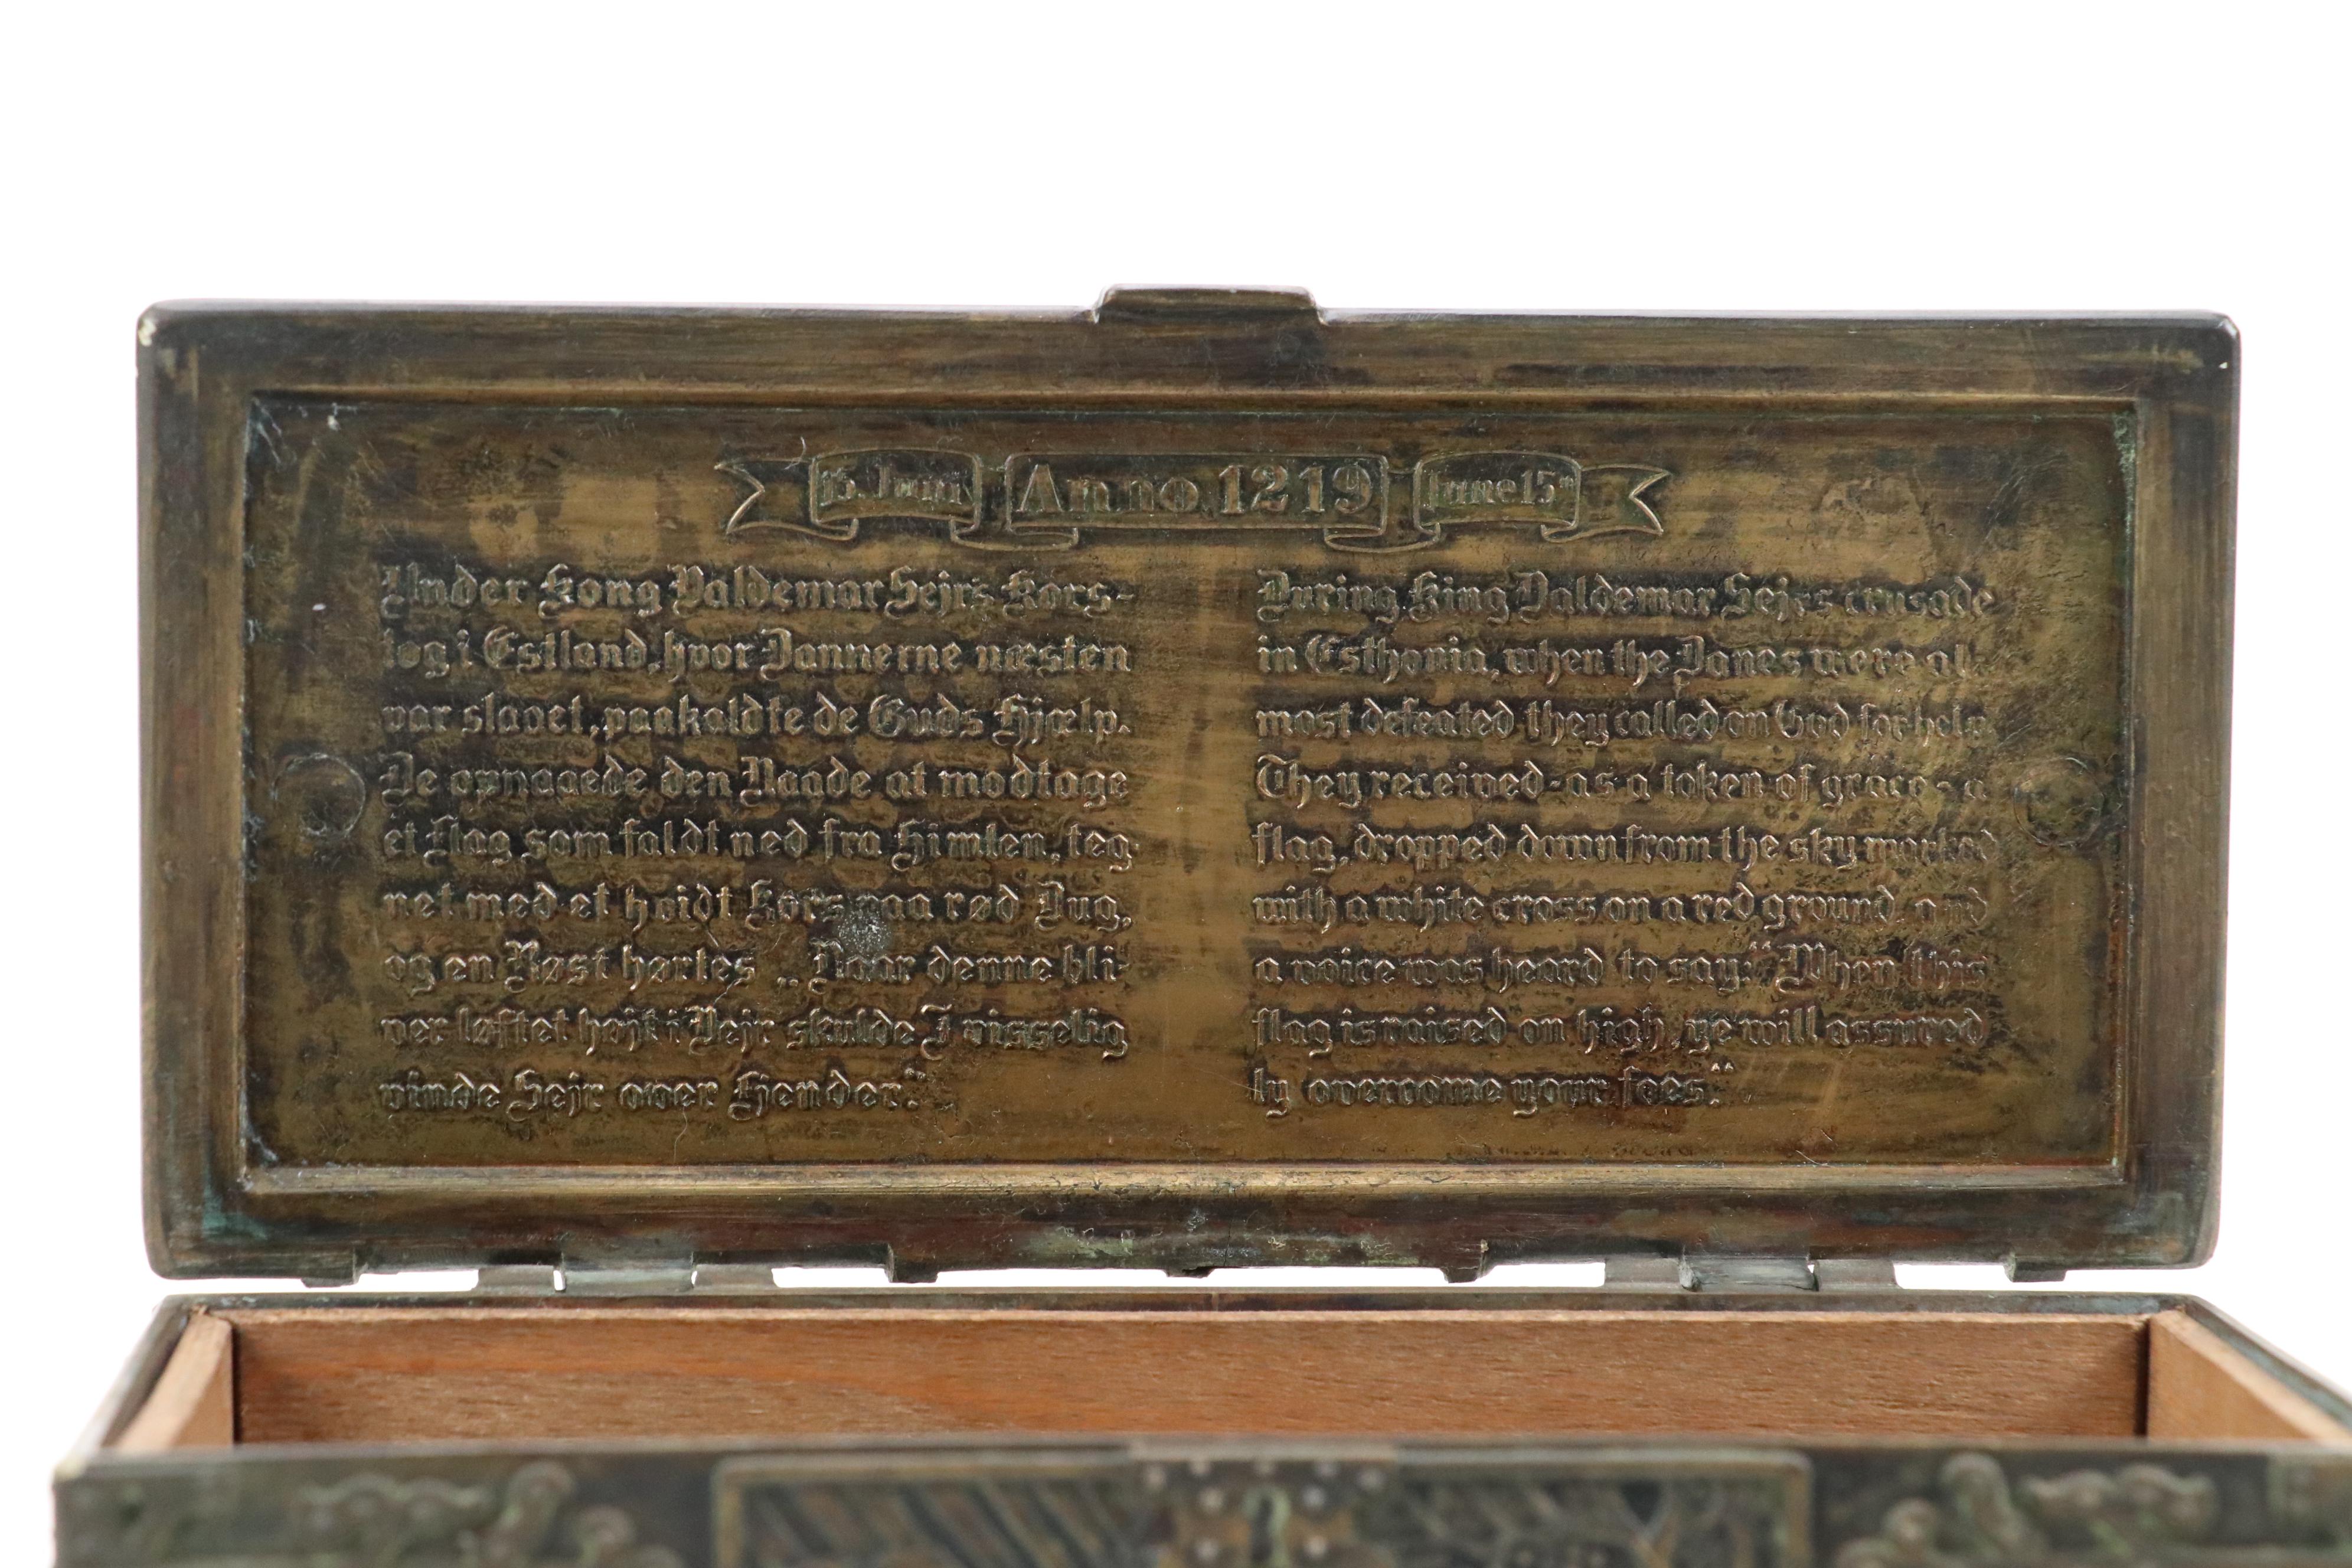 15. Juni Anno 1219 June 15th
Under Kong Valdemar Sejrs Kors-
tog i Estland, hvor Dannerne næsten
var slaaet, paakaldte de Guds Hjælp.
De opnaaede den Naade at modtage
et Flag som faldt ned fra Himlen, teg-
net med et hvidt Kors paa rød Dug,
og en Røst hørtes „Naar denne bli-
ver løftet højt i Vejr skulde I visselig
vinde Sejr over Fjender."
During King Valdemar Sejrs crusade
in Esthonia, when the Danes were al-
most defeated they called on God for help.
They received - as a token of grace - a
flag, dropped down from the sky marked
with a white cross on a red ground, and
a voice was heard to say: "When this
flag is raised on high, ye will assured
ly overcome your foes."